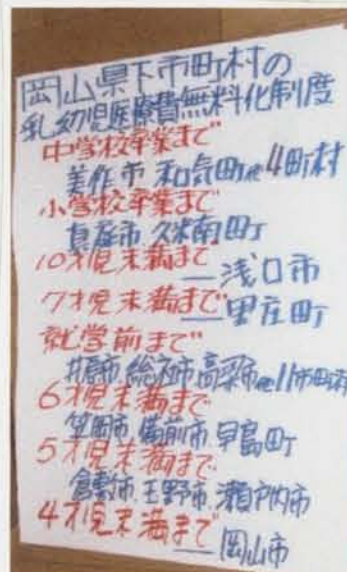 岡山県下市町村の
乳幼児医療費無料化制度
中学校卒業まで
美作市 和気町他4町村
小学校卒業まで
真庭市 久米南町
10才児未満まで
浅口市
7才児未満まで
里庄町
就学前まで
井原市、総社市、高梁市他11市町村
6才児未満まで
笠岡市、備前市、早島町
5才児未満まで
倉敷市、玉野市、瀬戸内市
4才児未満まで
岡山市